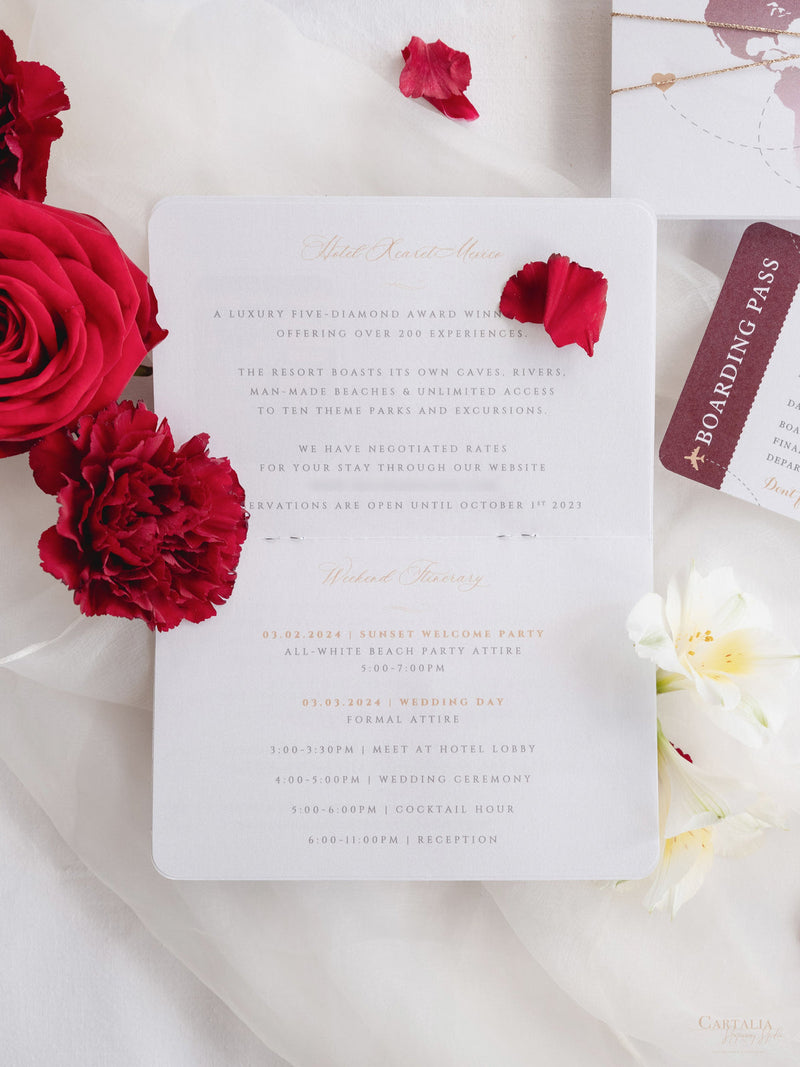 Hotel Xcaret Mexico
A LUXURY FIVE-DIAMOND AWARD
OFFERING OVER 200 EXPERIENCES.
THE RESORT BOASTS ITS OWN CAVES, RIVERS,
MAN-MADE BEACHES & UNLIMITED ACCESS
TO TEN THEME PARKS AND EXCURSIONS.
WE HAVE NEGOTIATED RATES
FOR YOUR STAY THROUGH OUR WEBSITE
ERVATIONS ARE OPEN UNTIL OCTOBER 1ST 2023
Weekend Itinerary
03.02.2024 | SUNSET WELCOME PARTY
ALL-WHITE BEACH PARTY ATTIRE
5:00-7:00PM
03.03.2024 | WEDDING DAY
FORMAL ATTIRE
3:00-3:30PM | MEET AT HOTEL LOBBY
4:00-5:00PM | WEDDING CEREMONY
5:00-6:00PM | COCKTAIL HOUR
6:00-11:00PM | RECEPTION
BOARDING PASS
DA
BOA
FINA
DEPAR
Don't
CARTALIA